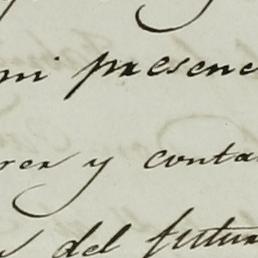 mi presenc
rer y conta
del futur